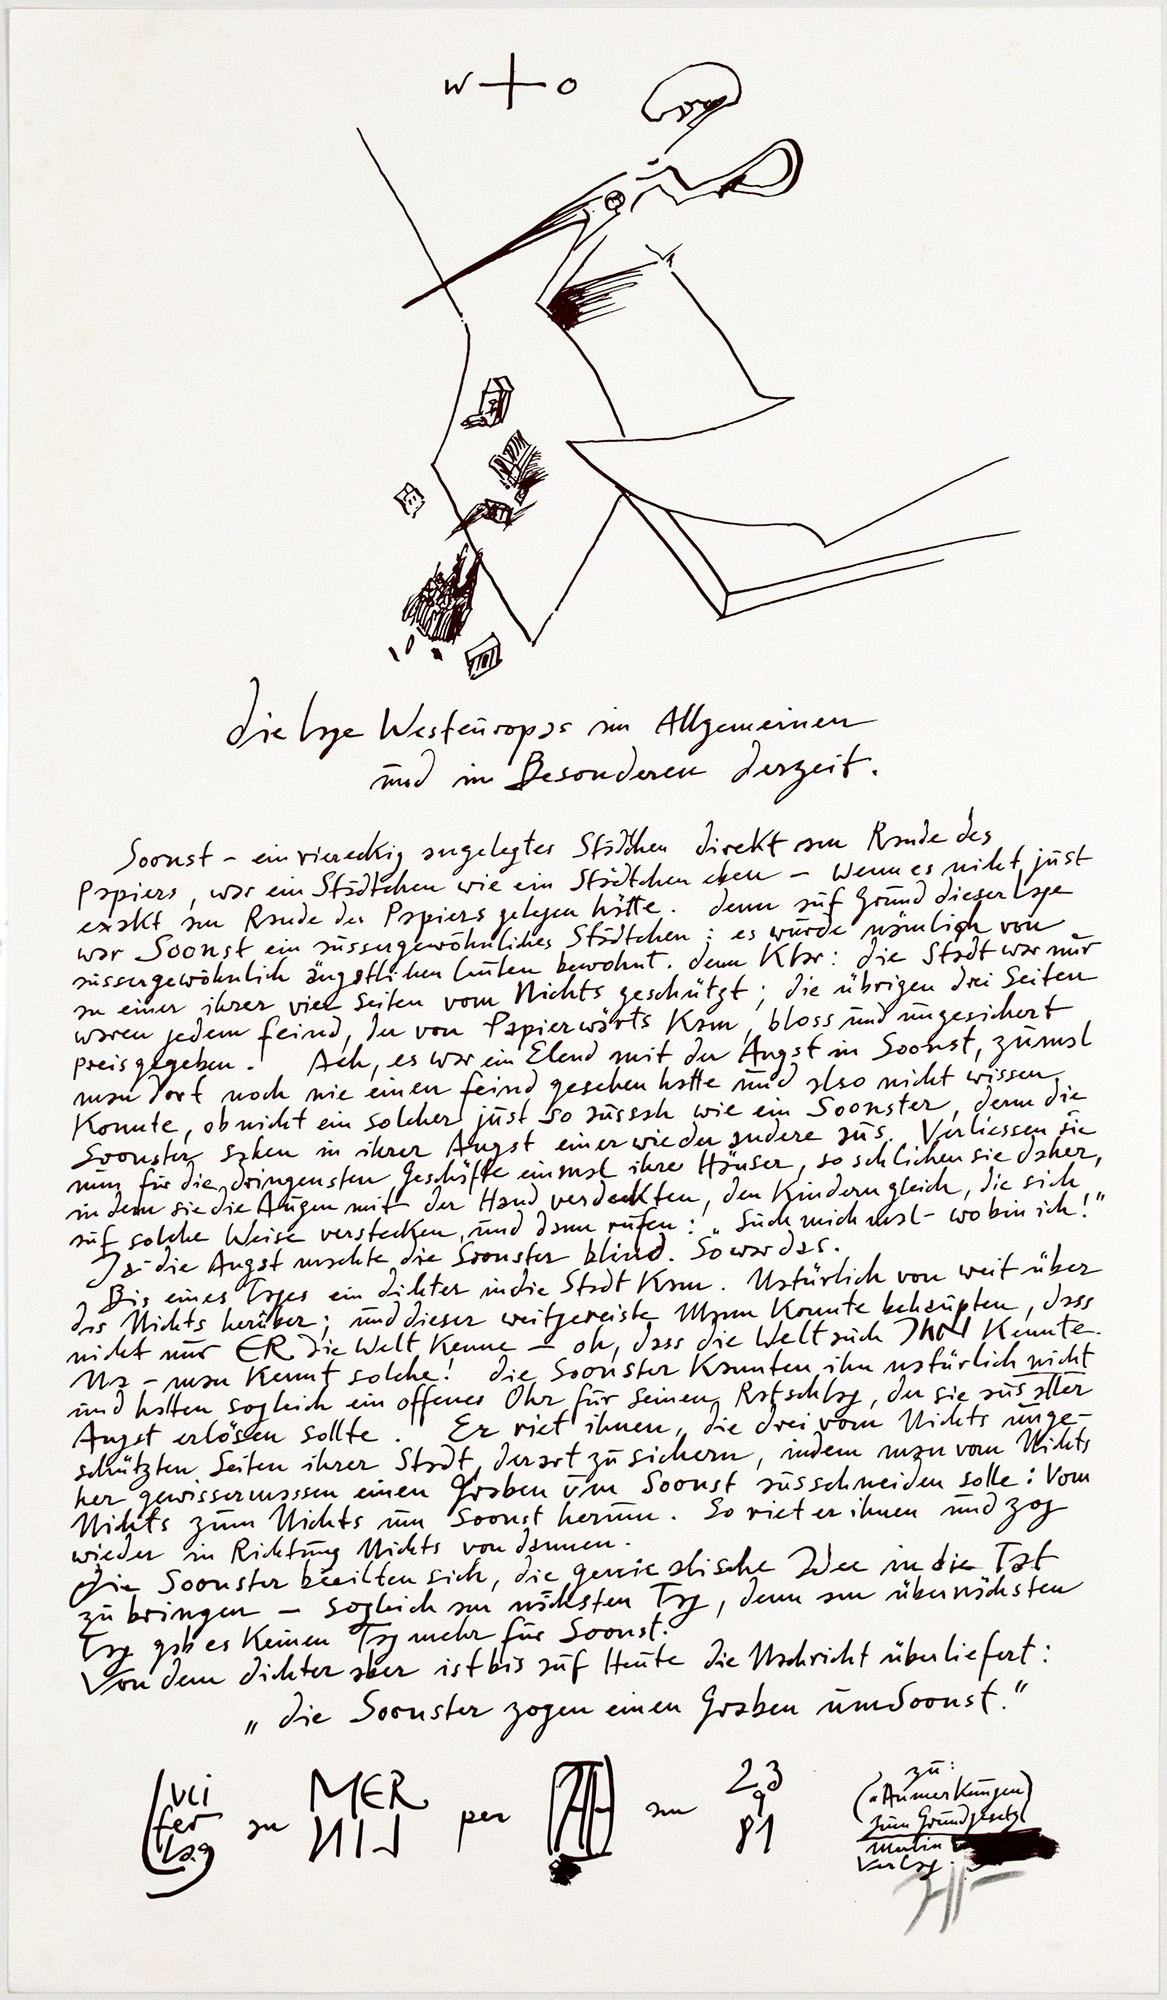 W O
die Lage Westeuropas im Allgemeinen
und im Besonderen derzeit.
Soonst – ein viereckig angelegtes Städtchen direkt am Rande des
Papiers, war ein Städtchen wie ein Städtchen eben – wenn es nicht just
exakt am Rande des Papiers gelegen hätte. denn auf Grund dieser Lage
war Soonst ein aussergewöhnliches Städtchen: es wurde nämlich von
aussergewöhnlich ängstlichen Leuten bewohnt. denn Klar: die Stadt war nur
an einer ihrer vier Seiten vom Nichts geschützt; die übrigen drei Seiten
waren jedem feind, der von Papierwärts Kam, bloss und ungesichert
preisgegeben. Ach, es war ein Elend mit der Angst in Soonst, zumal
man dort noch nie einen feind gesehen hatte und also nicht wissen
Konnte, ob nicht ein solcher just so aussah wie ein Soonster, denn die
Soonster sahen in ihrer Angst einer wie der andere aus. Verliessen sie
nun für die dringensten Geschäfte einmal ihre Häuser, so schlichen sie daher,
indem sie die Augen mit der Hand verdeckten, den Kindern gleich, die sich
auf solche Weise verstecken und dann rufen: „Such mich mal – wo bin ich!"
Ja – die Angst machte die Soonster blind. So war das.
Bis eines Tages ein dichter in die Stadt Kam. Natürlich von weit über
das Nichts herüber; und dieser weitgereiste Mann Konnte behaupten, dass
nicht nur ER die Welt Kenne – oh, dass die Welt auch IHN Kennte.
Na – man Kennt solche! die Soonster Kannten ihn natürlich nicht
und hatten sogleich ein offenes Ohr für seinen Ratschlag, der sie aus aller
Angst erlösen sollte. Er riet ihnen, die drei vom Nichts unge-
schützten Seiten ihrer Stadt derart zu sichern, indem man vom Nichts
her gewissermassen einen Graben um Soonst ausschneiden solle: Vom
Nichts zum Nichts um Soonst herum. So riet er ihnen und zog
wieder in Richtung Nichts von dannen.
Die Soonster beeilten sich, die genieialische Idee in die Tat
zu bringen – sogleich am nächsten Tag, denn am übernächsten
Tag gab es Keinen Tag mehr für Soonst.
Von dem dichter aber ist bis auf Heute die Nachricht überliefert:
„die Soonster zogen einen Graben um Soonst."
(vci fer lag an MERLIN per am 23 9 81
zu:
(„Anmerkungen)
zum Grundgesetz
Merlin
Verlag